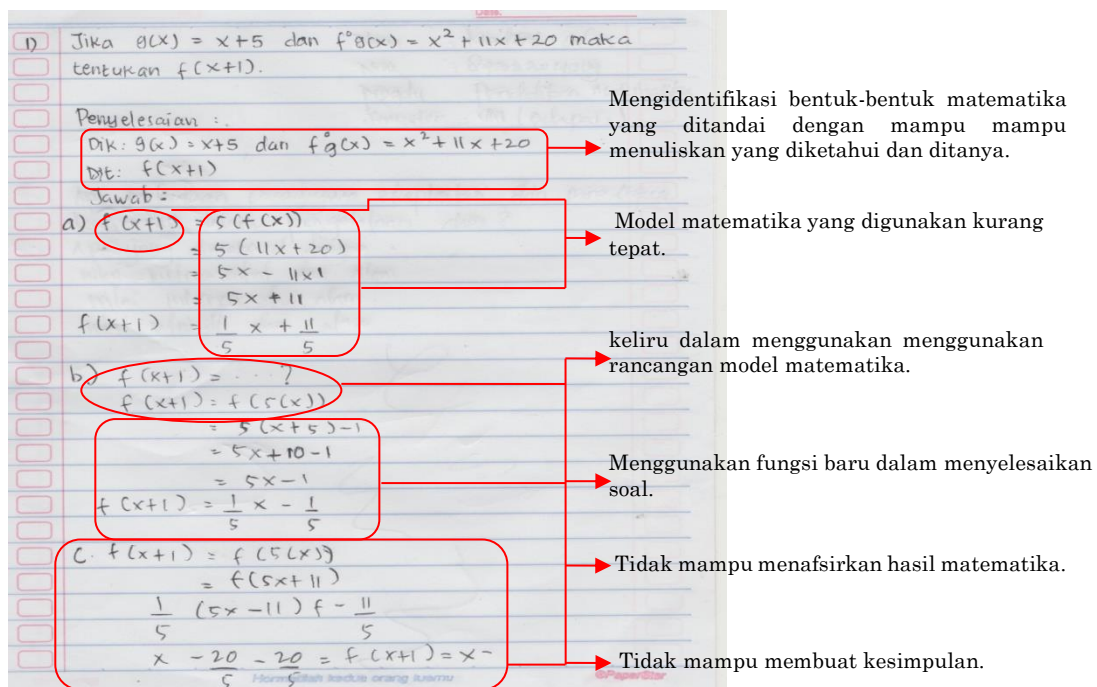 Date:
1) Jika g(x) = x+5 dan f°g(x) = x² + 11x + 20 maka
tentukan f(x+1).
Penyelesaian :.
Dik: g(x) = x+5 dan f°g(x) = x² + 11x + 20
Dit: f(x+1)
Jawab =
a) f(x+1) = 5(f(x))
= 5 (11x+20)
= 5x - 11x1
= 5x + 11
f(x+1) = 1/5 x + 11/5
b) f(x+1) = ....?
f(x+1) = f(5(x))
= 5(x+5)-1
= 5x+10-1
= 5x-1
f(x+1) = 1/5 x - 1/5
C. f(x+1) = f(5(x))
= f(5x+11)
1/5 (5x-11) f - 11/5
x - 20/5 - 20/5 = f(x+1) = x -
Hormatilah kedua orang tuamu
PaperStar
Mengidentifikasi bentuk-bentuk matematika
yang ditandai dengan mampu mampu
menuliskan yang diketahui dan ditanya.
Model matematika yang digunakan kurang
tepat.
keliru dalam menggunakan menggunakan
rancangan model matematika.
Menggunakan fungsi baru dalam menyelesaikan
soal.
Tidak mampu menafsirkan hasil matematika.
Tidak mampu membuat kesimpulan.